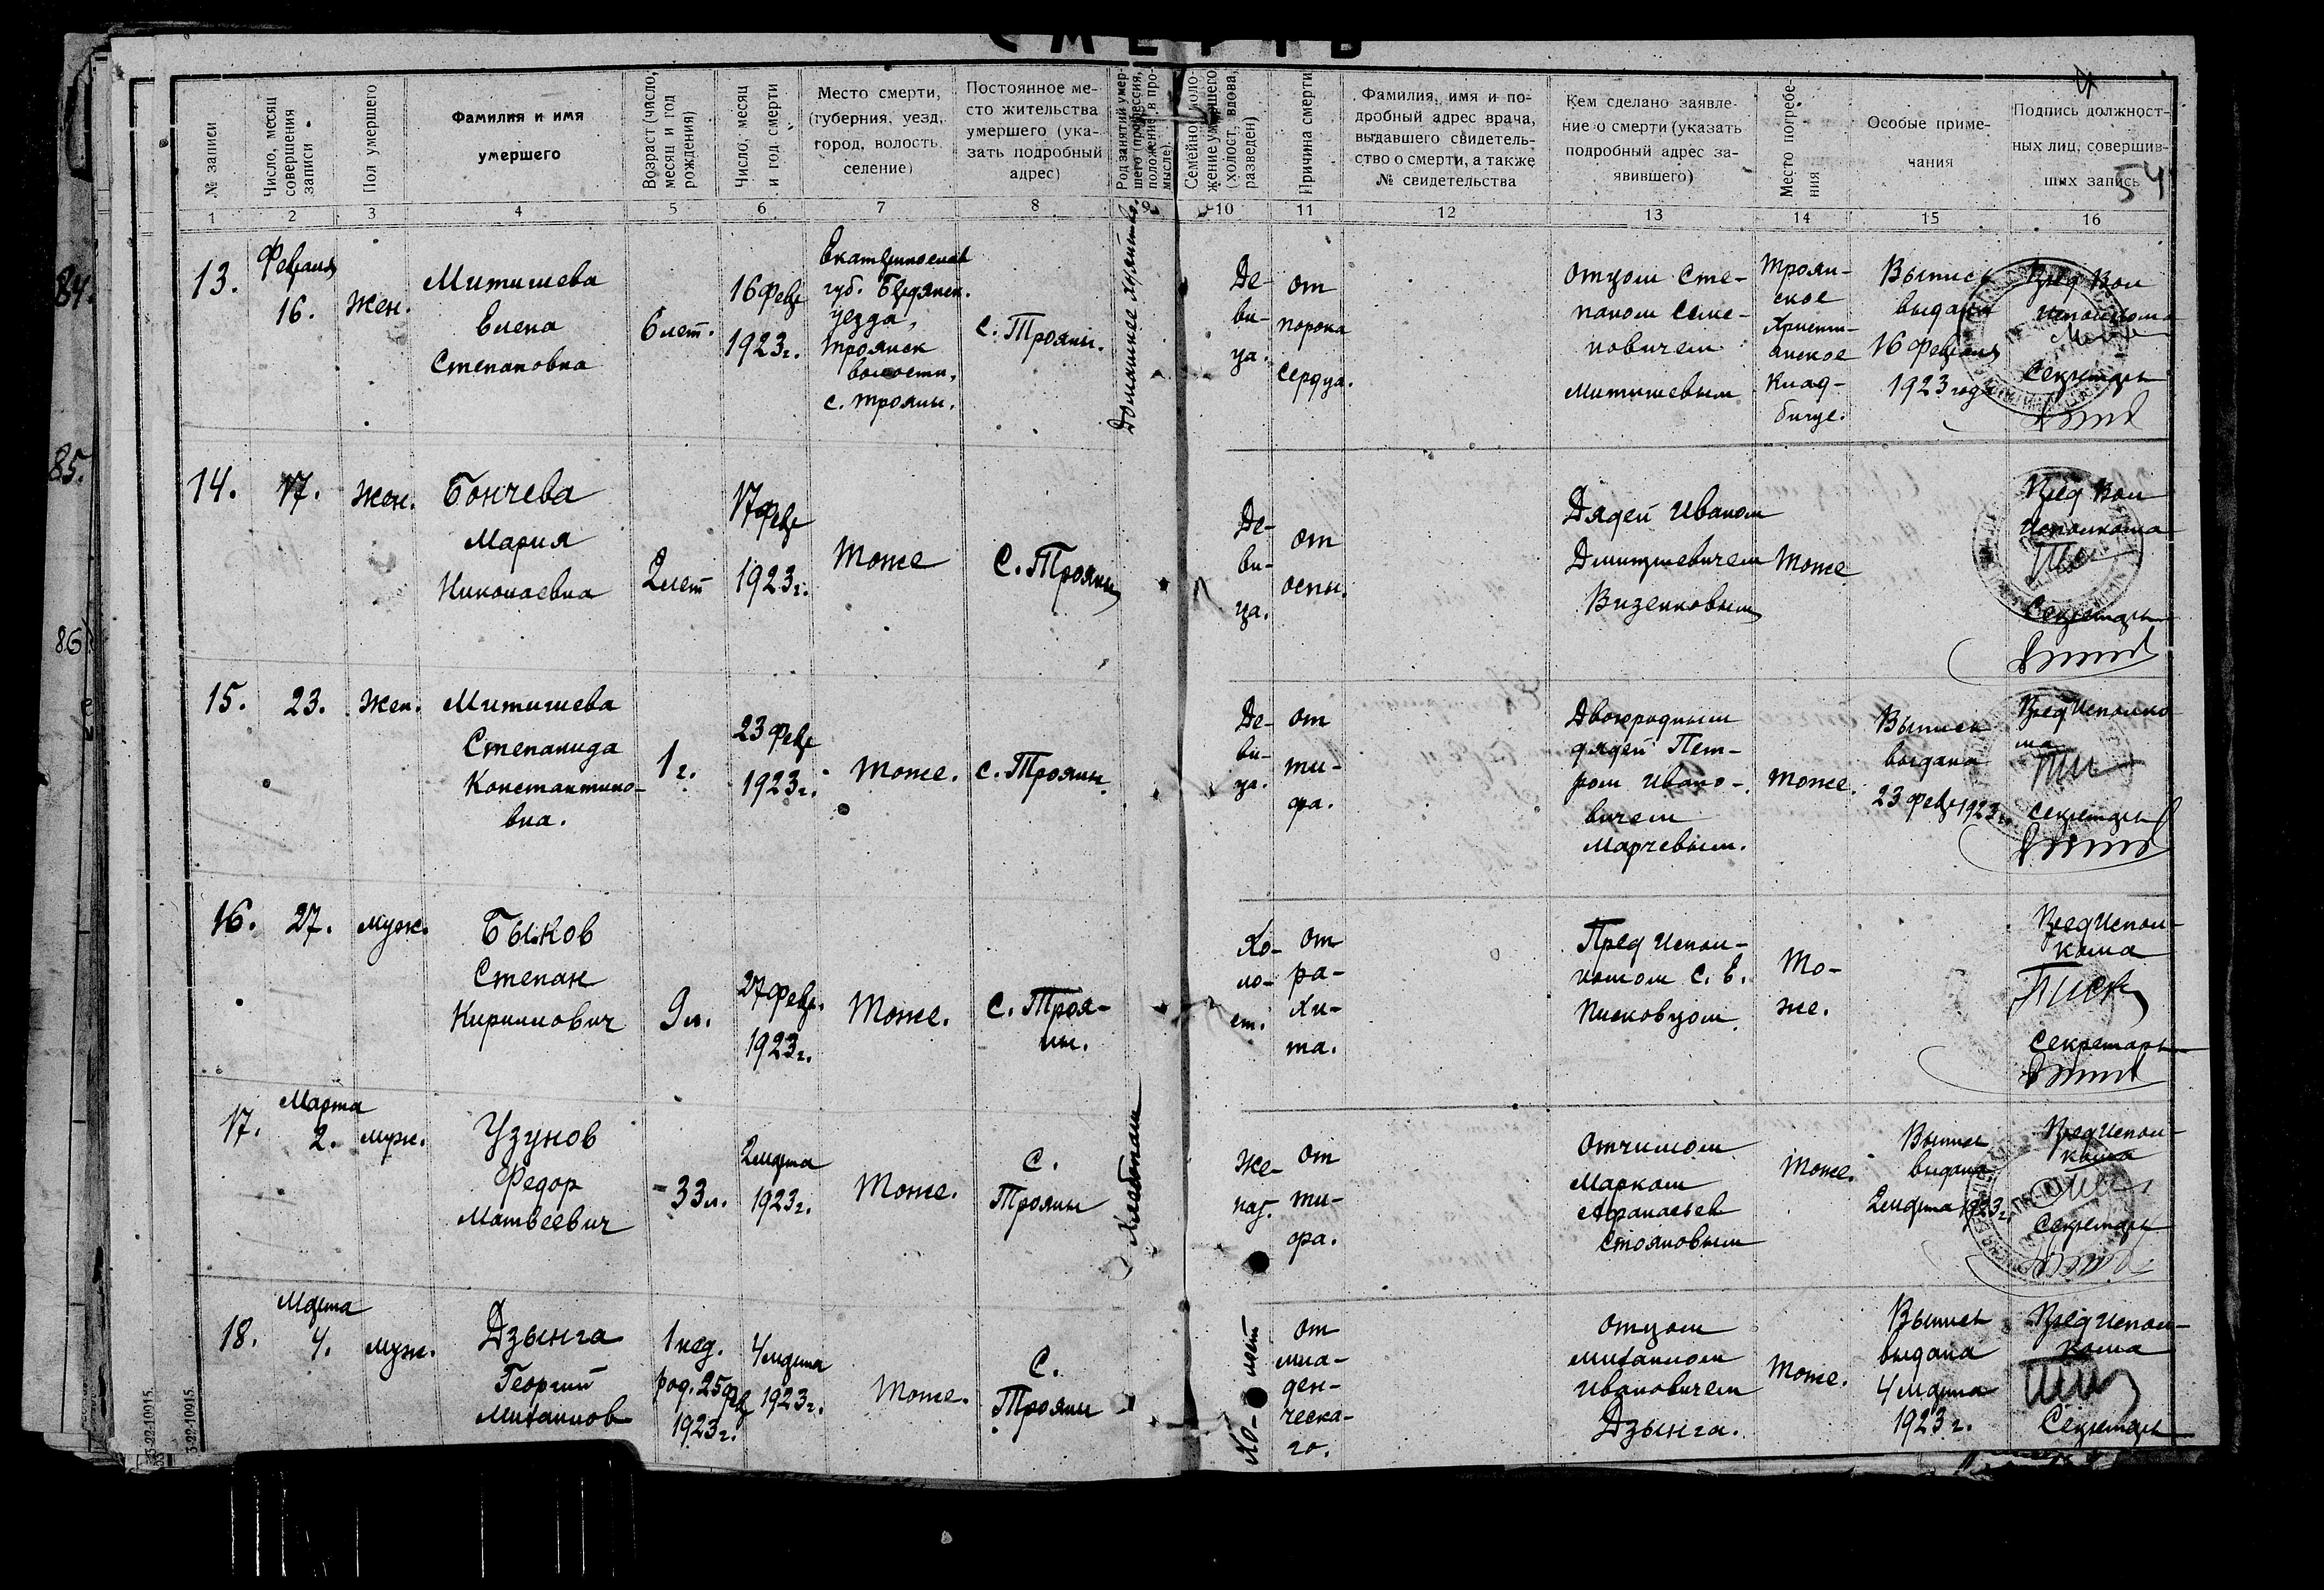 СМЕРТЬ
№ записи
Число, месяц
совершения
записи
Пол умершего
Фамилия и имя
умершего
Возраст (число,
месяц и год
рождения)
Число, месяц
и год смерти
Место смерти,
(губерния, уезд,
город, волость
селение)
Постоянное ме-
сто жительства
умершего (ука-
зать подробный
адрес)
Род занятий умер-
шего (профессия,
положение в про-
мысле)
Семейное поло-
жение умершего
(холост, вдова,
разведен)
Причина смерти
Фамилия, имя и по-
дробный адрес врача,
выдавшего свидетель-
ство о смерти, а также
№ свидетельства
Кем сделано заявле-
ние о смерти (указать
подробный адрес за-
явившего)
Место погребе-
ния
Особые приме-
чания
Подпись должност-
ных лиц, совершив-
ших запись
54
1 2 3 4 5 6 7 8 9 10 11 12 13 14 15 16
84.
13.
Февраля
16.
Жен.
Митишева
Елена
Степановна
6 лет.
16 февр
1923г.
Екатеринослав
губ. Бердянск.
уезда,
Троянск
волости,
с. Трояны.
С. Трояны.
Домашнее хозяйство.
Де-
ви-
ца.
от
порока
сердца.
Отцом Сте-
паном Семе-
новичем
Митишевым
Троян-
ское
Христи-
анское
клад-
бище.
Выпись
выдана
16 февраля
1923 года
Пред Вол
исполкома
Секретарь
85.
14.
17.
Жен.
Бончева
Мария
Николаевна
2 лет
17 февр
1923г.
Тоже
С. Трояны
Де-
ви-
ца.
от
оспы.
Дядей Иваном
Дмитриевичем
Визенковым
Тоже
Пред Вол
Исполкома
Секретарь
86
15.
23.
Жен.
Митишева
Степанида
Константино-
вна.
1 г.
23 февр
1923г.
Тоже.
С. Трояны.
Де-
ви-
ца.
от
ти-
фа.
Двоюродным
дядей Пет-
ром Ивано-
вичем
Марчевым.
Тоже.
Выпись
выдана
23 февр 1923г.
Пред Исполко
ма
Секретарь
16.
27.
муж.
Быков
Степан
Кириллович
9 л.
27 февр.
1923г.
Тоже.
С. Троя-
ны.
Хо-
ло-
ст.
от
ра-
хи-
та.
Пред Испол-
комом С. Е.
Писковцом.
То-
же.
Пред Испол-
кома
Писк
Секретарь
17.
Марта
2.
муж.
Узунов
Федор
Матвеевич
33 л.
2 марта
1923г.
Тоже.
С.
Трояны
Хлебопаш
Же-
нат.
от
ти-
фа.
Отчимом
Марком
Афанасьев
Стояновым
Тоже.
Выпись
выдана
2 марта 1923г.
Пред Испол-
кома
Секретарь
18.
Марта
4.
муж.
Дзынга
Георгий
Михайлов
1 нед.
род. 25 фев
1923г.
4 марта
1923г.
Тоже.
С.
Трояны
Хо-лост
от
мла-
ден-
ческа-
го.
Отцом
Михаилом
Ивановичем
Дзынга.
Тоже.
Выпись
выдана
4 марта
1923 г.
Пред Испол-
кома
Секретарь